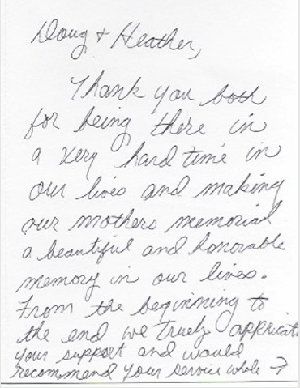 Doug + Heather,
Thank you both
for being there in
a very hard time in
our lives and making
our mothers memorial
a beautiful and honorable
memory in our lives.
From the beginning to
the end we truely appriciate
your support and would
recommend your service whole →